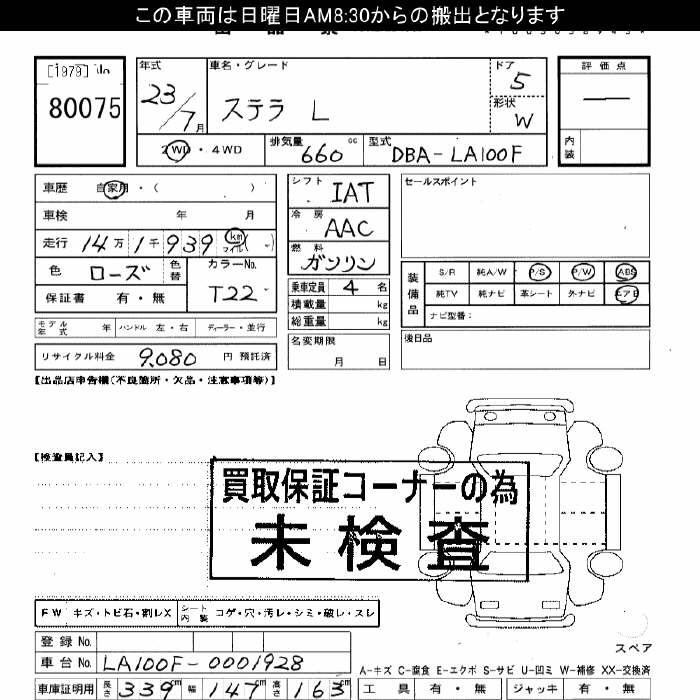 この車両は日曜日AM8:30からの搬出となります
[1979] No
80075
年式 車名・グレード ドア 評価点
23/7月 ステラ L 5
形状 W
2WD・4WD 排気量 660 cc 型式 DBA-LA100F 内装
車歴 自家用・( )
シフト IAT
セールスポイント
車検 年 月
冷房 AAC
走行 14万1千939 km マイル( )
燃料 ガソリン
色 ローズ 色替 カラーNo. T22
装備品 S/R 純A/W P/S P/W ABS
乗車定員 4 名
純TV 純ナビ 革シート 外ナビ エアB
保証書 有・無
積載量 kg
ナビ型番:
総重量 kg
モデル年式 年 ハンドル 左・右 ディーラー・並行
名変期限 月 日
後日品
リサイクル料金 9,080 円 預託済
【出品店申告欄(不良箇所・欠品・注意事項等)】
【検査員記入】
買取保証コーナーの為
未検査
FW キズ・トビ石・割レX シート内装 コゲ・穴・汚レ・シミ・破レ・スレ
登録 No.
スペア
車台 No. LA100F-0001928
A-キズ C-腐食 E-エクボ S-サビ U-凹ミ W-補修 XX-交換済
車庫証明用 長さ 339cm 幅 147cm 高さ 163cm 工具 有・無 ジャッキ 有・無